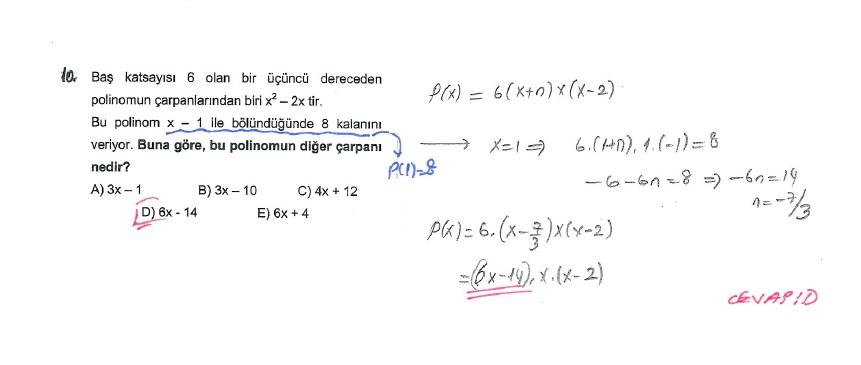 10. Baş katsayısı 6 olan bir üçüncü dereceden
polinomun çarpanlarından biri x² – 2x tir.
Bu polinom x – 1 ile bölündüğünde 8 kalanını
veriyor. Buna göre, bu polinomun diğer çarpanı
nedir?
A) 3x – 1 B) 3x – 10 C) 4x + 12
D) 6x - 14 E) 6x + 4
P(1)=8
P(x) = 6(x+n)x(x-2)
→ x=1 ⇒ 6.(1+n).1.(-1)=8
-6-6n=8 ⇒ -6n=14
n=-7/3
P(x)=6.(x-7/3)x(x-2)
=(6x-14).x.(x-2)
CEVAP:D